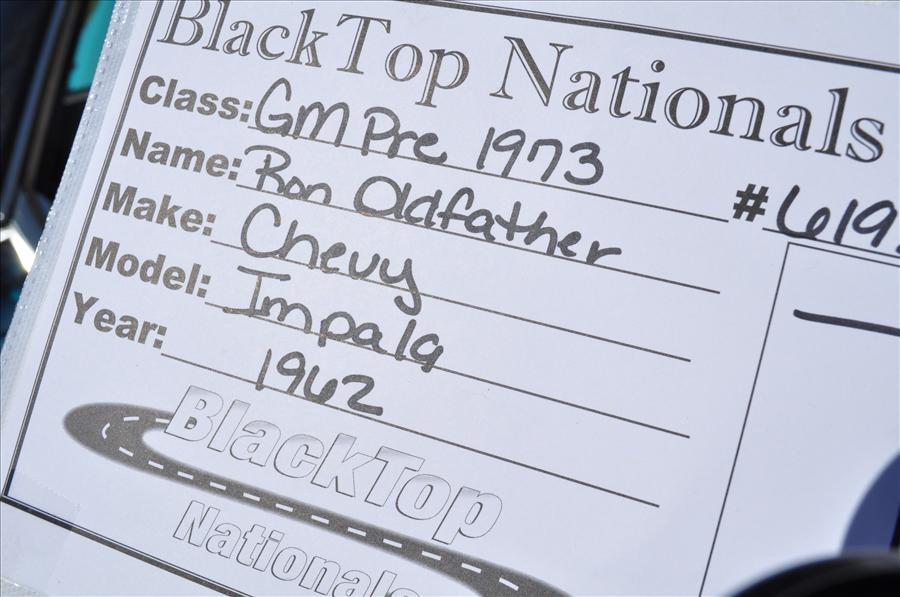 BlackTop Nationals
Class: GM Pre 1973
#619
Name: Ron Oldfather
Make: Chevy
Model: Impala
Year: 1962
BlackTop
Nationals